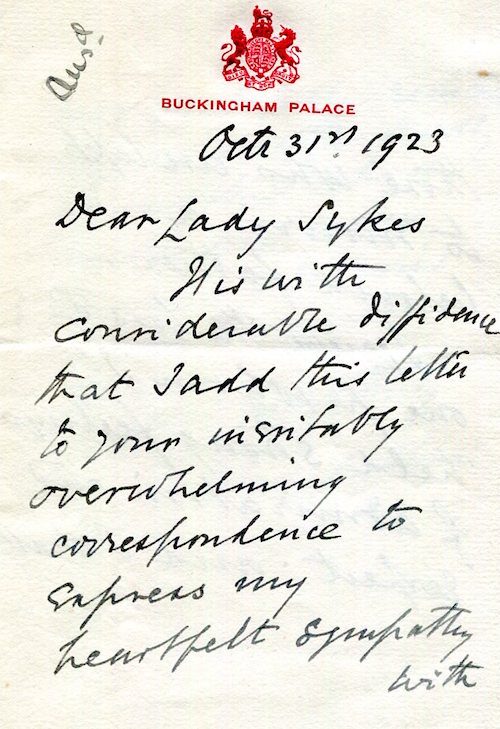 Ansd
BUCKINGHAM PALACE
Octr 31st 1923
Dear Lady Sykes
It is with
considerable diffidence
that I add this letter
to your inevitably
overwhelming
correspondence to
express my
heartfelt sympathy
with